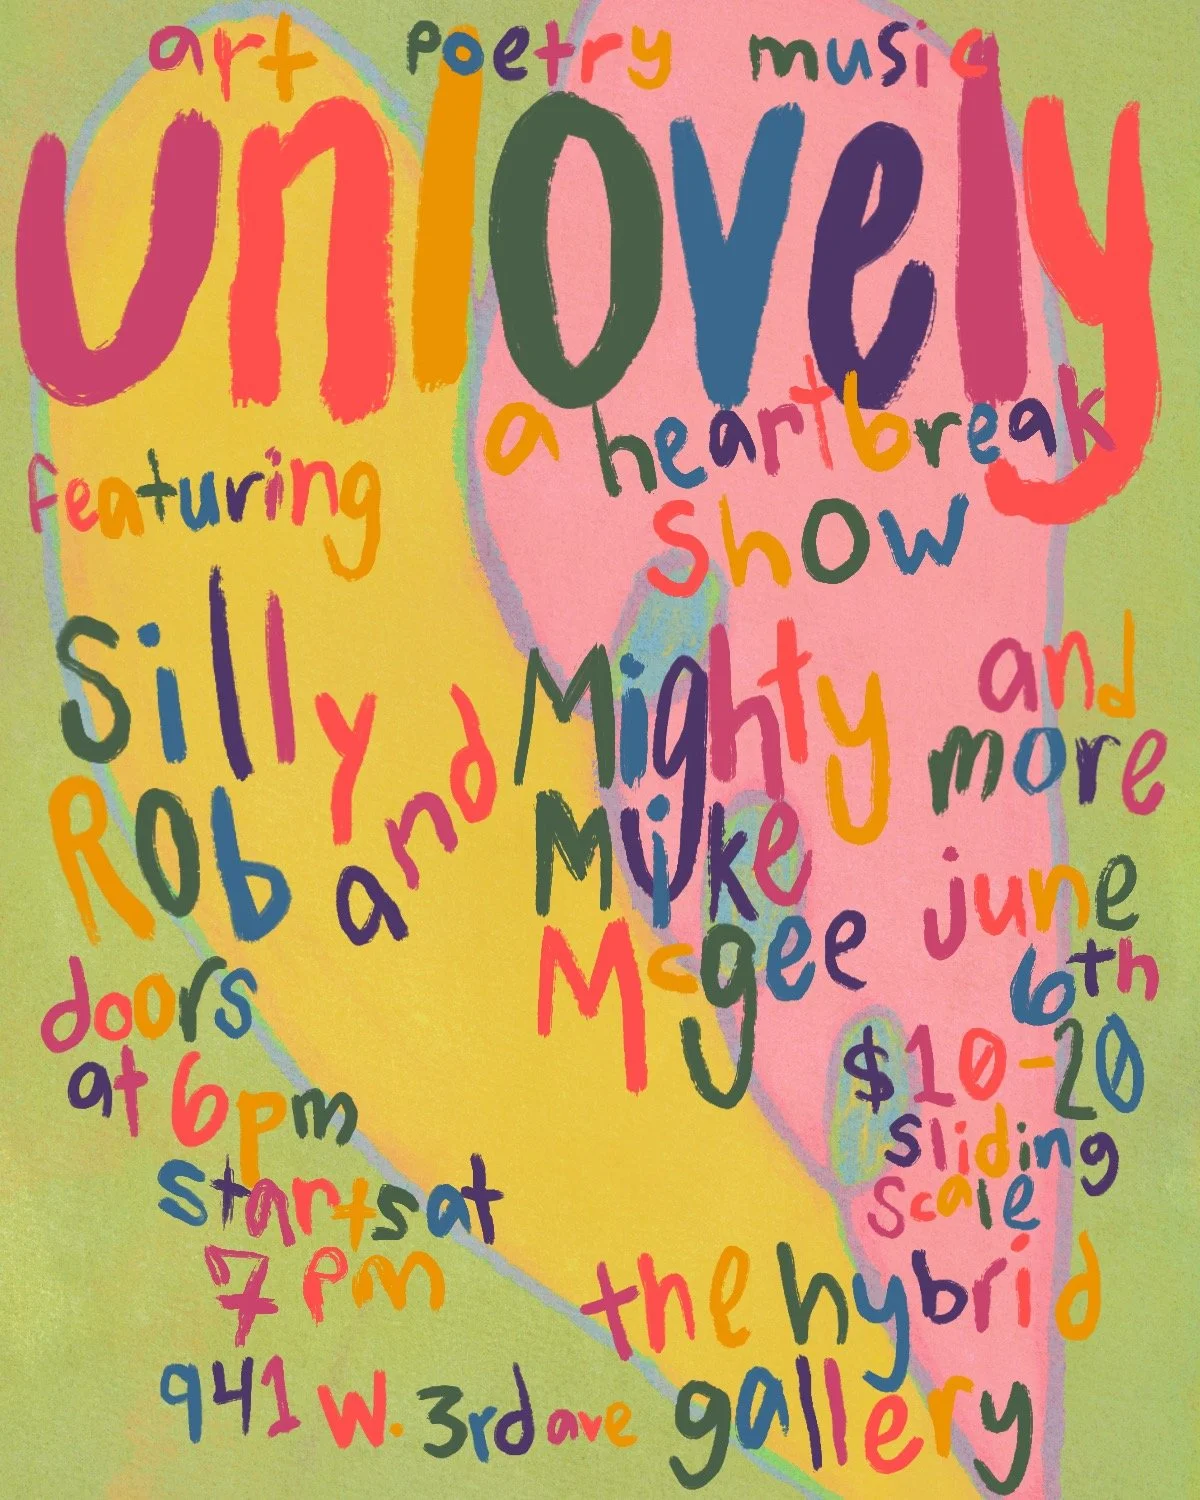 art poetry music
unlovely
a heartbreak
show
featuring
Silly
Rob and
Mighty
Mike
Mcgee
and
more
june
6th
$10-20
sliding
scale
doors
at 6pm
starts at
7 pm
the hybrid
gallery
941 w. 3rd ave